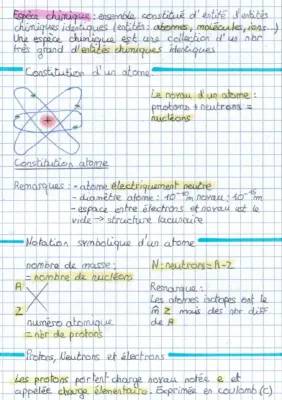 Espèce chimique : ensemble constitué d'entité d'entités
chimiques identiques (entités : atomes, molécules, ions...)
Une espèce chimique est une collection d'un nbr
très grand d'entités chimiques identiques
Constitution d'un atome
Le noyau d'un atome :
protons + neutrons =
nucléons
+
Constitution atome
Remarques : - atome électriquement neutre
- diamètre atome : 10⁻¹⁰m noyau : 10⁻¹⁵m
- espace entre électrons et noyau est le
vide → structure lacunaire
Notation symbolique d'un atome
nombre de masse :
= nombre de nucléons
A
X
Z
numéro atomique
= nbr de protons
N : neutrons = A-Z
Remarque :
Les atomes isotopes ont le
m̂ Z mais des nbr diff
de A
Protons, Neutrons et électrons
Les protons portent charge noyau notée e et
appelée charge élémentaire. Exprimée en coulomb (C)